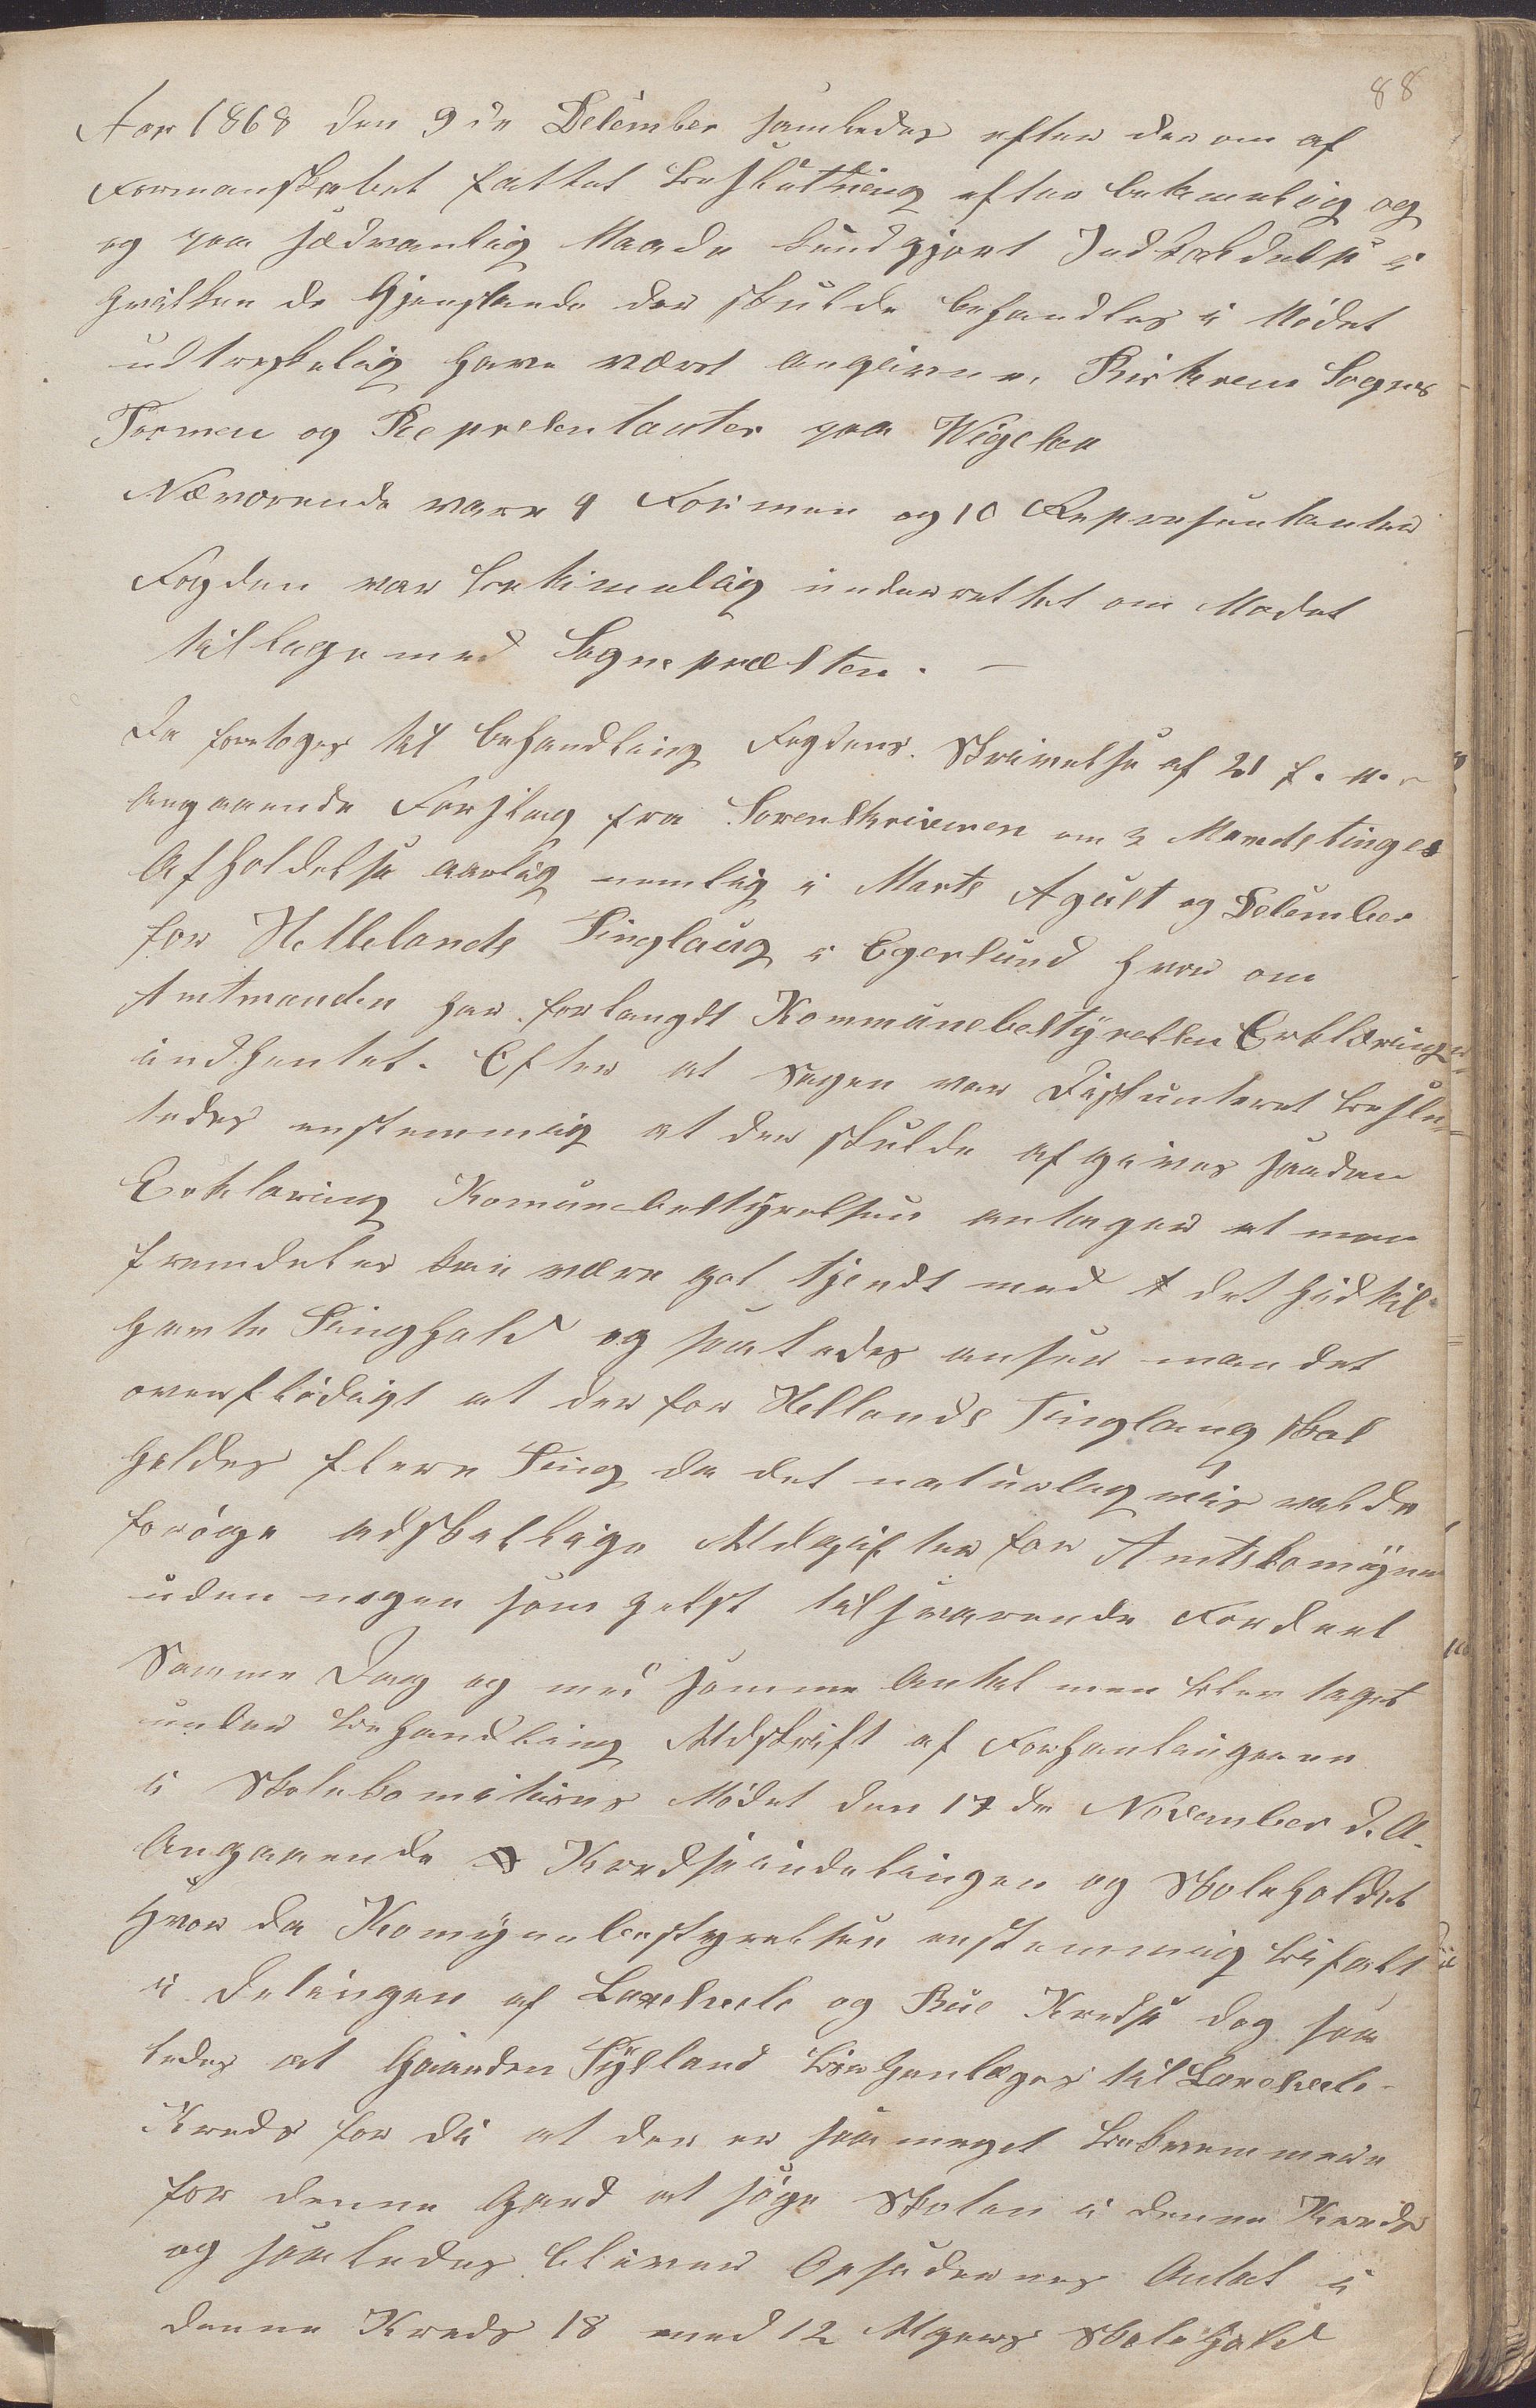 88
Aar 1868 den 9de December samledes efter der om af
Formanskabet fattet Beslutning efter betimelig og
og paa sædvanlig Maade kundgjort Indkaldelse i
hvilken de Gjenstande der skulde behandles i Mødet
udtrykkelig have været angivne. Birkrems Sogns
Formen og Repræsentanter paa Wigesaa
Nærværende vare 4 Formen og 10 Representanter
Fogden var betimelig underrettet om Mødet
tillige med Sognepræsten. —
Da foretoges til Behandling Fogdens Skrivelse af 21 f. m.
Angaaende Forslag fra Sorenskriveren om 3 Maandstinges
Afholdelse aarlig nemlig i Marts Agust og December
for Hellelands Tinglaug i Egersund hvor om
Amtmanden har forlangdt Kommunebestyrelsen Erklæringe
indhentet. Efter at Sagen var Diskunteret beslu-
tedes enstemmig at der skulde afgives saadan
Erklæring Komunebestyrelsen antager at man
fremdeles kan være got tjendt med det hidtil
havte Tinghold og saaledes anser man det
overflødigt at der for Hellands Tinglaug skal
holdes flere Ting da det naturligviis vilde
forøge adskellige Udgifter for Amtskomyner
uden nogen som helst tilsvarende Fordeel
Samme Dag og med samme Antal men blev taget
under Behandling Udskrift af Forhanlingerne
i Skolekomitions Mødet den 17de November d. A.
Angaaende Kredsinddelingen og Skoleholdet
hvor da Komynebestyrelsen enstemmig bifalt
i Delingen af Lavehcele og Rue Kredse dog saa
ledes at Gaarden Sylland henlæges til Lavehcele-
Kreds for di at der er saa meget bekvemmere
for denne Gard at søge Skolen i denne Kreds
og saaledes bliver Opsidernes Antal i
denne Kreds 18 med 12 Ugers Skolehold